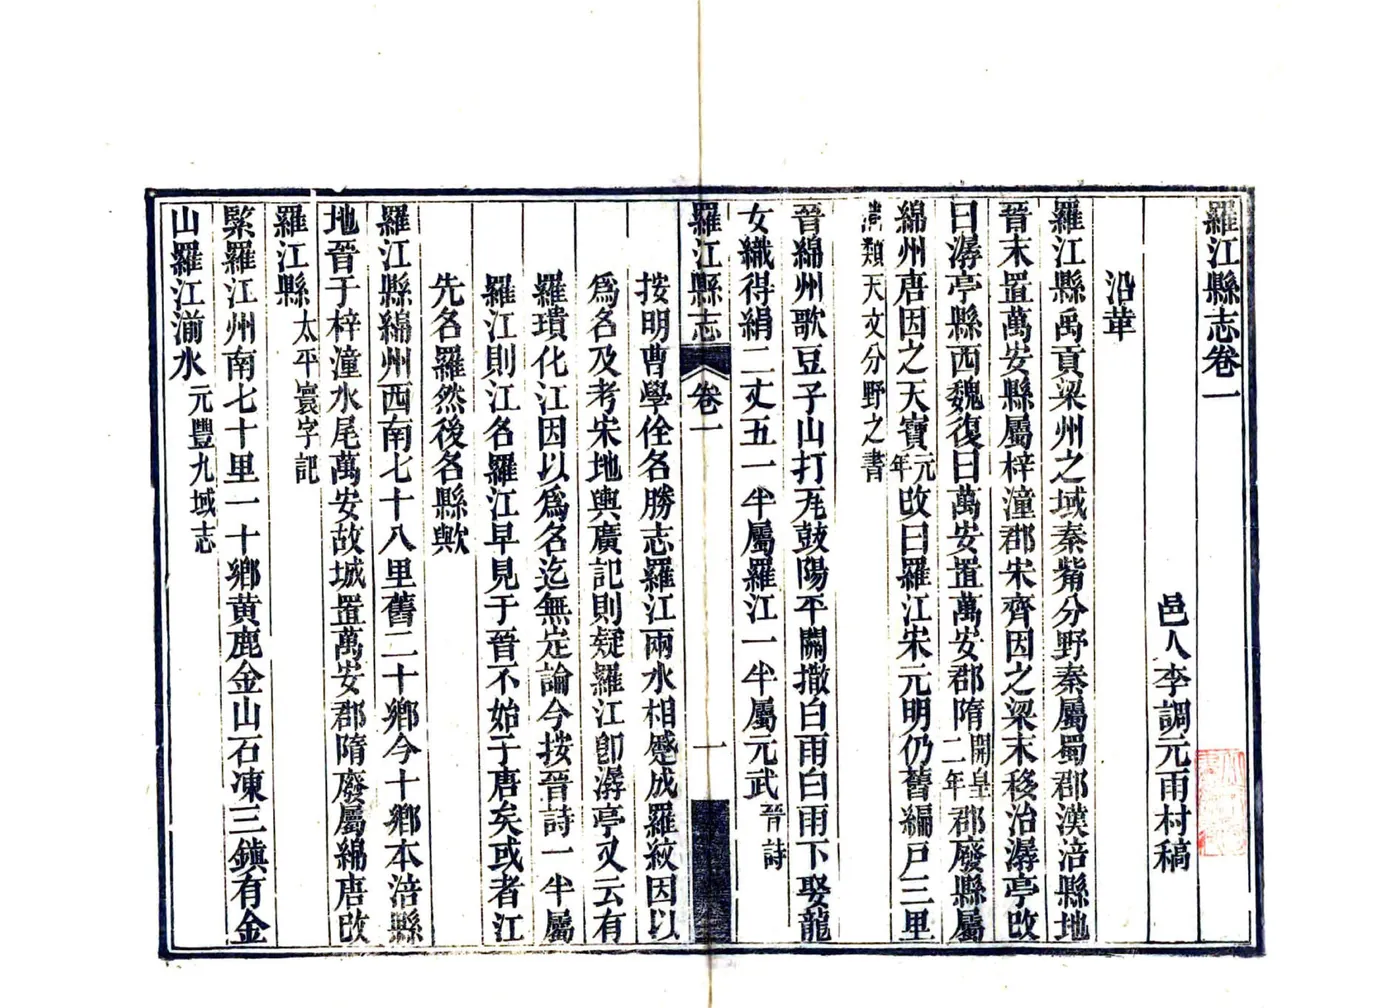 羅江縣志卷一
邑人李調元雨村稿
沿革
羅江縣禹貢梁州之域秦觜分野秦屬蜀郡漢涪縣地
晉末置萬安縣屬梓潼郡宋齊因之梁末移治潺亭改
曰潺亭縣西魏復曰萬安置萬安郡隋開皇二年郡廢縣屬
綿州唐因之天寶元年改曰羅江宋元明仍舊編戸三里
類天文分野之書
晉綿州歌豆子山打瓦鼓陽平關撒白雨白雨下娶龍
女織得絹二丈五一半屬羅江一半屬元武晉詩
羅江縣志 卷一 一
按明曹學佺名勝志羅江兩水相蹙成羅紋因以
爲名及考宋地輿廣記則疑羅江卽潺亭又云有
羅璝化江因以爲名迄無定論今按晉詩一半屬
羅江則江名羅江早見于晉不始于唐矣或者江
先名羅然後名縣歟
羅江縣綿州西南七十八里舊二十鄉今十鄉本涪縣
地晉于梓潼水尾萬安故城置萬安郡隋廢屬綿唐改
羅江縣太平寰宇記
緊羅江州南七十里一十鄉黃鹿金山石凍三鎮有金
山羅江湔水元豐九域志